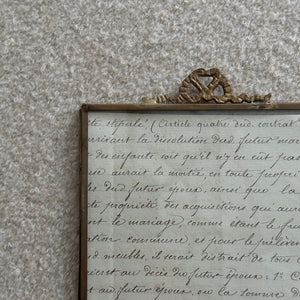 été stipulé. (L'article quatre dud. contrat
survivant la dissolution dud. futur mar
et des enfants, soit qu'il n'y en eut pas
aurait la moitié, en toute propri
dud. futur époux, ainsi que la
té propriété, des acquisitions qui au
nt le mariage, comme étant le fru
ration commune, et pour le prélève
d. meubles, il serait distrait de tous l
ient au décès du futur époux. 1° C
t au futur époux, ou la somme d